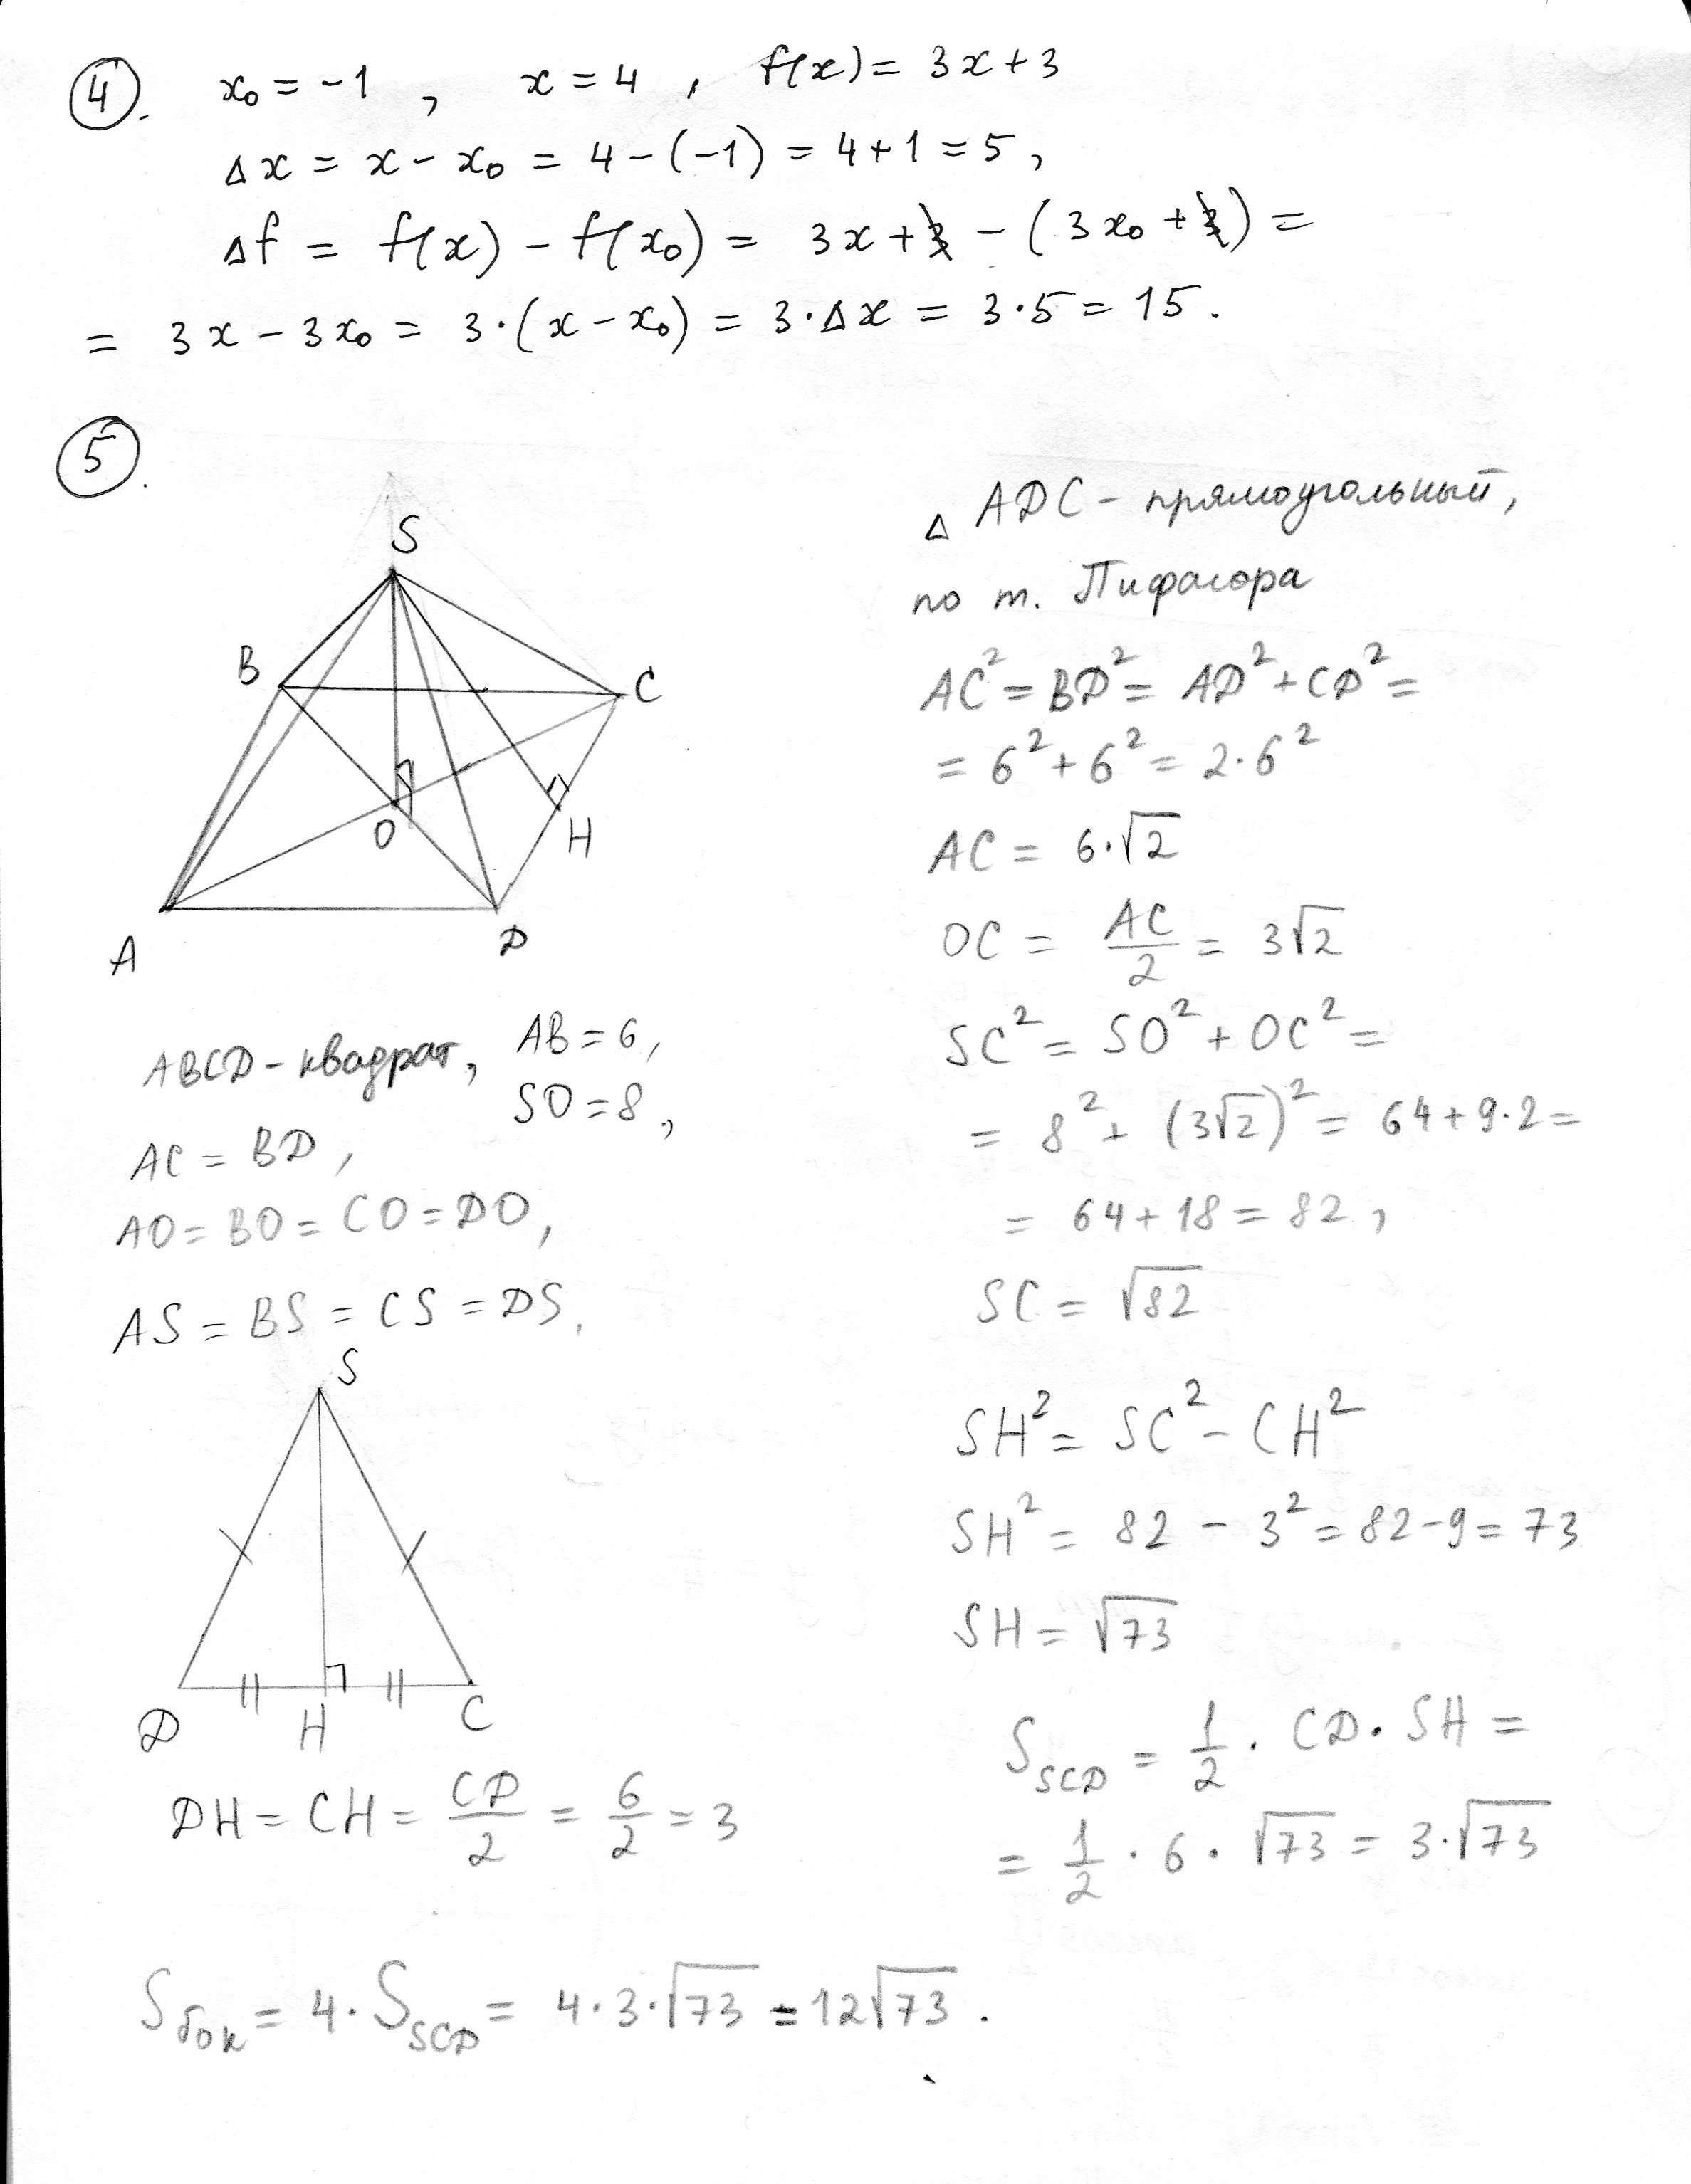 4.
x₀ = -1, x = 4, f(x) = 3x + 3
Δx = x - x₀ = 4 - (-1) = 4 + 1 = 5,
Δf = f(x) - f(x₀) = 3x + 3 - (3x₀ + 3) =
= 3x - 3x₀ = 3·(x - x₀) = 3·Δx = 3·5 = 15.
5.
S
B
C
O
H
A
D
ABCD - квадрат, AB = 6,
SO = 8,
AC = BD,
AO = BO = CO = DO,
AS = BS = CS = DS.
S
D
H
C
DH = CH = CD/2 = 6/2 = 3
Δ ADC - прямоугольный,
по т. Пифагора
AC² = BD² = AD² + CD² =
= 6² + 6² = 2·6²
AC = 6·√2
OC = AC/2 = 3√2
SC² = SO² + OC² =
= 8² + (3√2)² = 64 + 9·2 =
= 64 + 18 = 82,
SC = √82
SH² = SC² - CH²
SH² = 82 - 3² = 82 - 9 = 73
SH = √73
S_SCD = 1/2 · CD · SH =
= 1/2 · 6 · √73 = 3·√73
S_бок = 4·S_SCD = 4·3·√73 = 12√73.